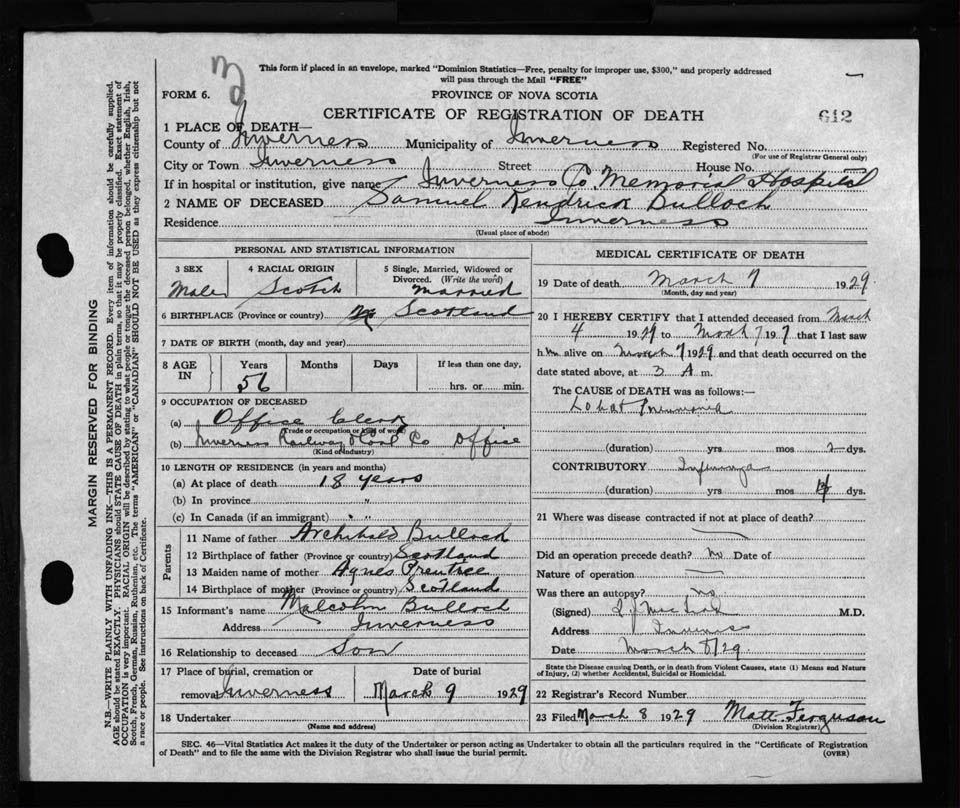 This form if placed in an envelope, marked "Dominion Statistics—Free, penalty for improper use, $300," and properly addressed
will pass through the Mail "FREE"
FORM 6.
PROVINCE OF NOVA SCOTIA
CERTIFICATE OF REGISTRATION OF DEATH
612
1 PLACE OF DEATH—
County of Inverness Municipality of Inverness Registered No.
(For use of Registrar General only)
City or Town Inverness Street House No.
If in hospital or institution, give name Inverness Co Memorial Hospital
2 NAME OF DECEASED Samuel Kendrick Bulloch
Residence Inverness
(Usual place of abode)
PERSONAL AND STATISTICAL INFORMATION
3 SEX 4 RACIAL ORIGIN 5 Single, Married, Widowed or
Divorced. (Write the word)
Male Scotch Married
6 BIRTHPLACE (Province or country) Scotland
7 DATE OF BIRTH (month, day and year)
8 AGE IN Years Months Days If less than one day,
56 hrs. or min.
9 OCCUPATION OF DECEASED
(a) Office Clerk
(Trade or occupation or kind of work)
(b) Inverness Railway & Coal Co Office
(Kind of industry)
10 LENGTH OF RESIDENCE (in years and months)
(a) At place of death 18 years
(b) In province "
(c) In Canada (if an immigrant) " "
Parents
11 Name of father Archibald Bulloch
12 Birthplace of father (Province or country) Scotland
13 Maiden name of mother Agnes Prentice
14 Birthplace of mother (Province or country) Scotland
15 Informant's name Malcolm Bulloch
Address Inverness
16 Relationship to deceased Son
17 Place of burial, cremation or Date of burial
removal Inverness March 9 1929
18 Undertaker
(Name and address)
MEDICAL CERTIFICATE OF DEATH
19 Date of death March 7 1929
(Month, day and year)
20 I HEREBY CERTIFY that I attended deceased from March
4 1929 to March 7 19 , that I last saw
him alive on March 7 1929 and that death occurred on the
date stated above, at 3 A m.
The CAUSE OF DEATH was as follows:—
Lobar Pneumonia
(duration) yrs mos 2 dys.
CONTRIBUTORY Influenza
(duration) yrs mos dys.
21 Where was disease contracted if not at place of death?
Did an operation precede death? No Date of
Nature of operation
Was there an autopsy? No
(Signed) M.D.
Address Inverness
Date March 8/29.
State the Disease causing Death, or in death from Violent Causes, state (1) Means and Nature
of Injury, (2) whether Accidental, Suicidal or Homicidal.
22 Registrar's Record Number
23 Filed March 8 1929 Matt Ferguson
(Division Registrar)
SEC. 46—Vital Statistics Act makes it the duty of the Undertaker or person acting as Undertaker to obtain all the particulars required in the "Certificate of Registration
of Death" and to file the same with the Division Registrar who shall issue the burial permit. (OVER)
MARGIN RESERVED FOR BINDING
N.B.—WRITE PLAINLY WITH UNFADING INK—THIS IS A PERMANENT RECORD. Every item of information should be carefully supplied.
AGE should be stated EXACTLY. PHYSICIANS should STATE CAUSE OF DEATH in plain terms, so that it may be properly classified. Exact statement of
OCCUPATION is very important. RACIAL ORIGIN will be described by stating to what people or tongue the deceased person belonged, whether English, Irish,
Scotch, French, German, Russian, Ruthenian, etc. The terms "AMERICAN" or "CANADIAN" SHOULD NOT BE USED as they express citizenship but not
a race or people. See instructions on back of Certificate.